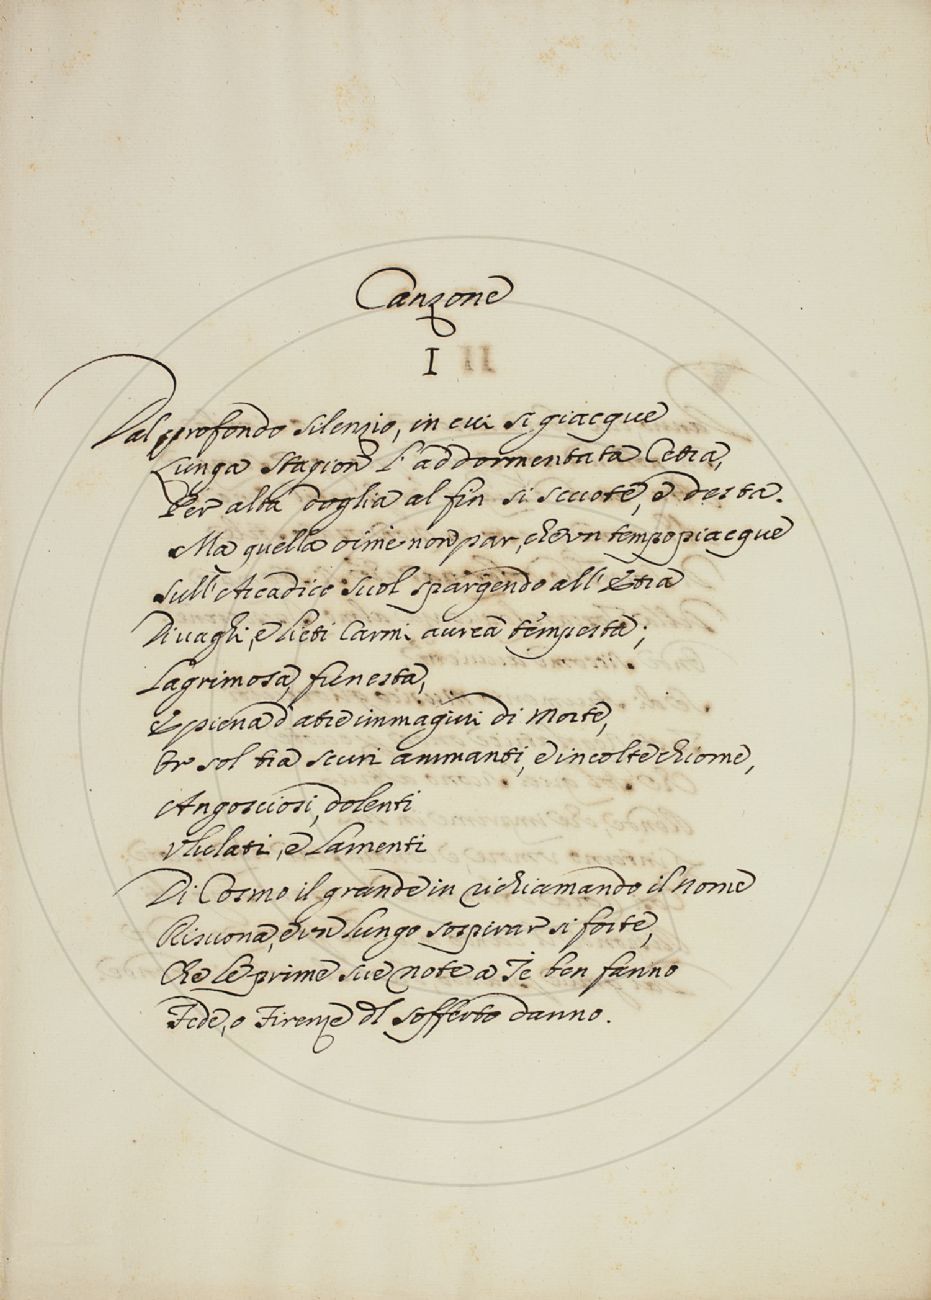 Canzone
I
Dal profondo silenzio, in cui si giacque
Lunga stagion l'addormentata Cetra,
Per alta doglia al fin si scuote, e desta.
Ma quella oimè non par, che vn tempo piacque
sull'Arcadico suol spargendo all'Etra
Di uaghi, e lieti Carmi aurea tempesta;
Lagrimosa, funesta,
E piena d'atre immagini di Morte,
Or sol tra scuri ammanti, e incolte chiome,
Angosciosi, dolenti
Vlulati, e Lamenti
Di Cosmo il grande in richiamando il Nome
Risuona, e vn lungo sospirar sì forte,
Che le prime sue note a Te ben fanno
Fede, o Firenze del sofferto danno.